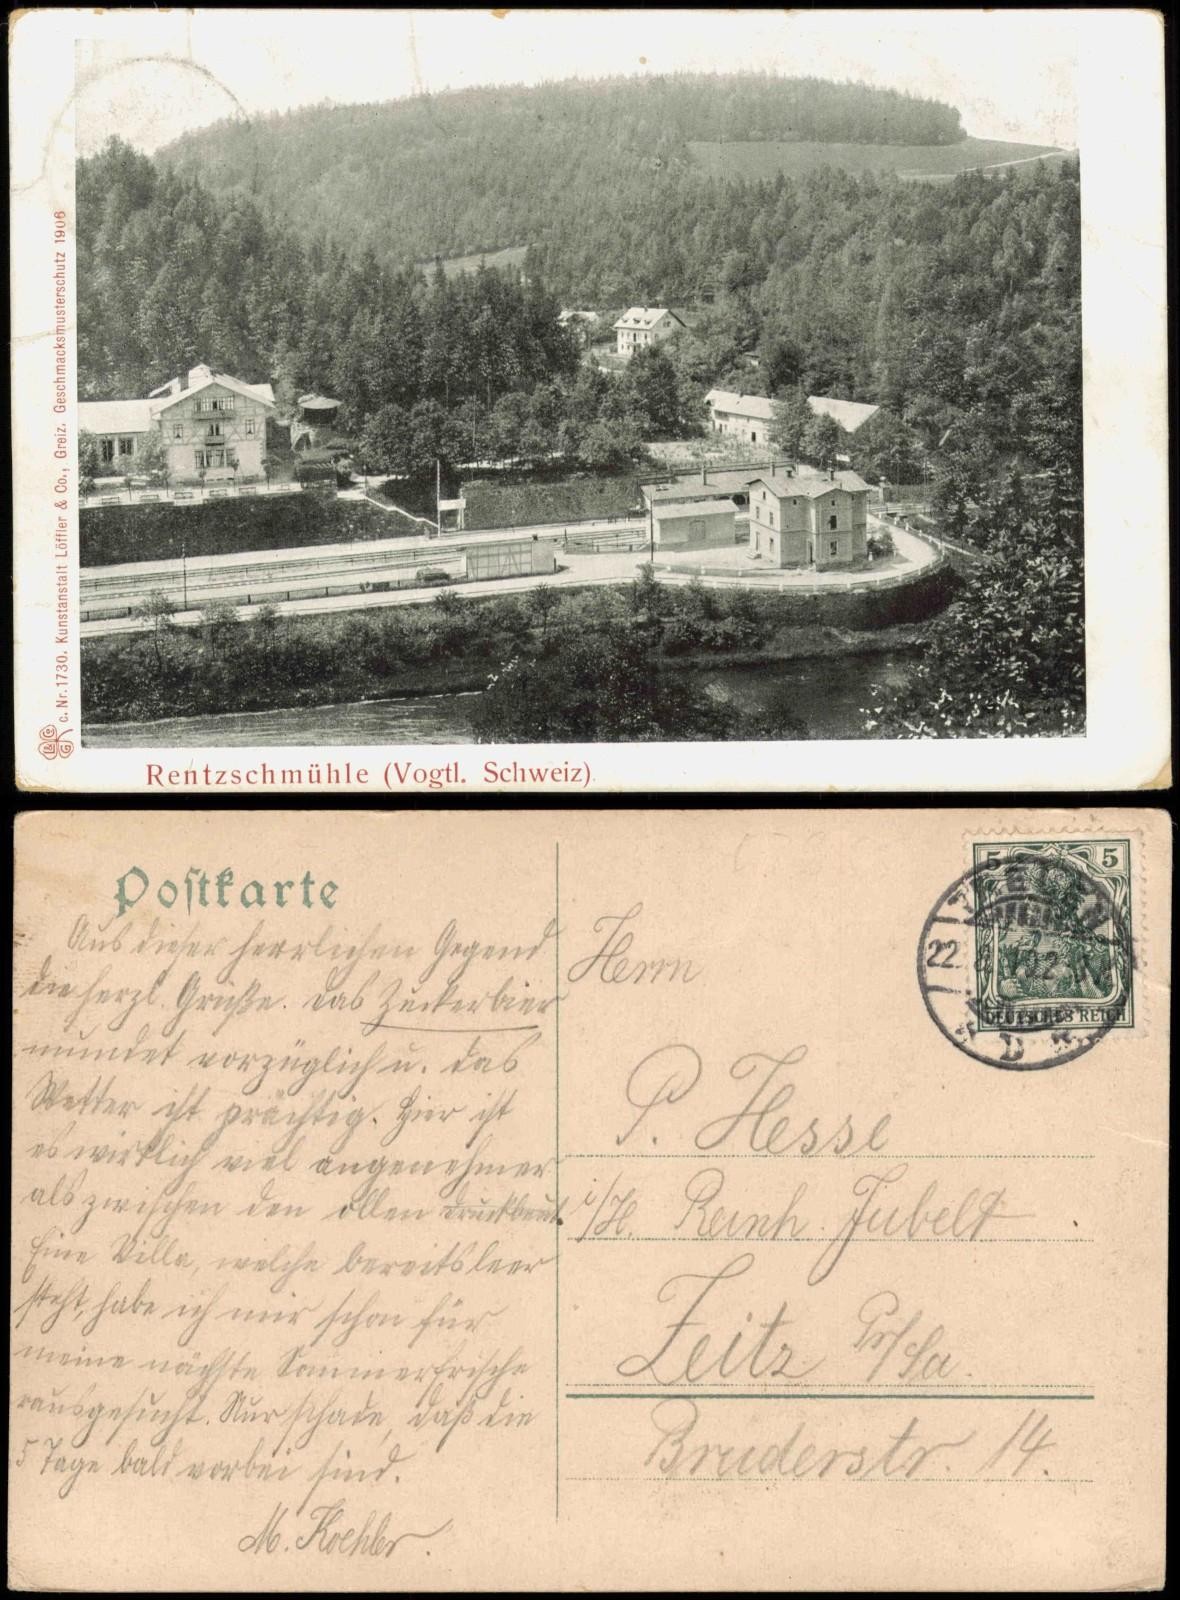 c. Nr. 1730. Kunstanstalt Löffler & Co., Greiz. Geschmacksmusterschutz 1906
Rentzschmühle (Vogtl. Schweiz)
Postkarte
Aus dieser herrlichen Gegend
die herzl. Grüße. Das Zuckerbier
mundet vorzüglich u. das
Wetter ist prächtig. Hier ist
es wirklich viel angenehmer
als zwischen den ollen
Eine Villa, welche bereits leer
steht, habe ich mir schon für
meine nächste Sommerfrische
rausgesucht. Nur schade, daß die
5 Tage bald vorbei sind.
M. Koehler.
5 5
DEUTSCHES REICH
22.
D
Herrn
P. Hesse
i/H. Reinh. Jubelt
Zeitz Pr/Sa.
Bruderstr. 14.